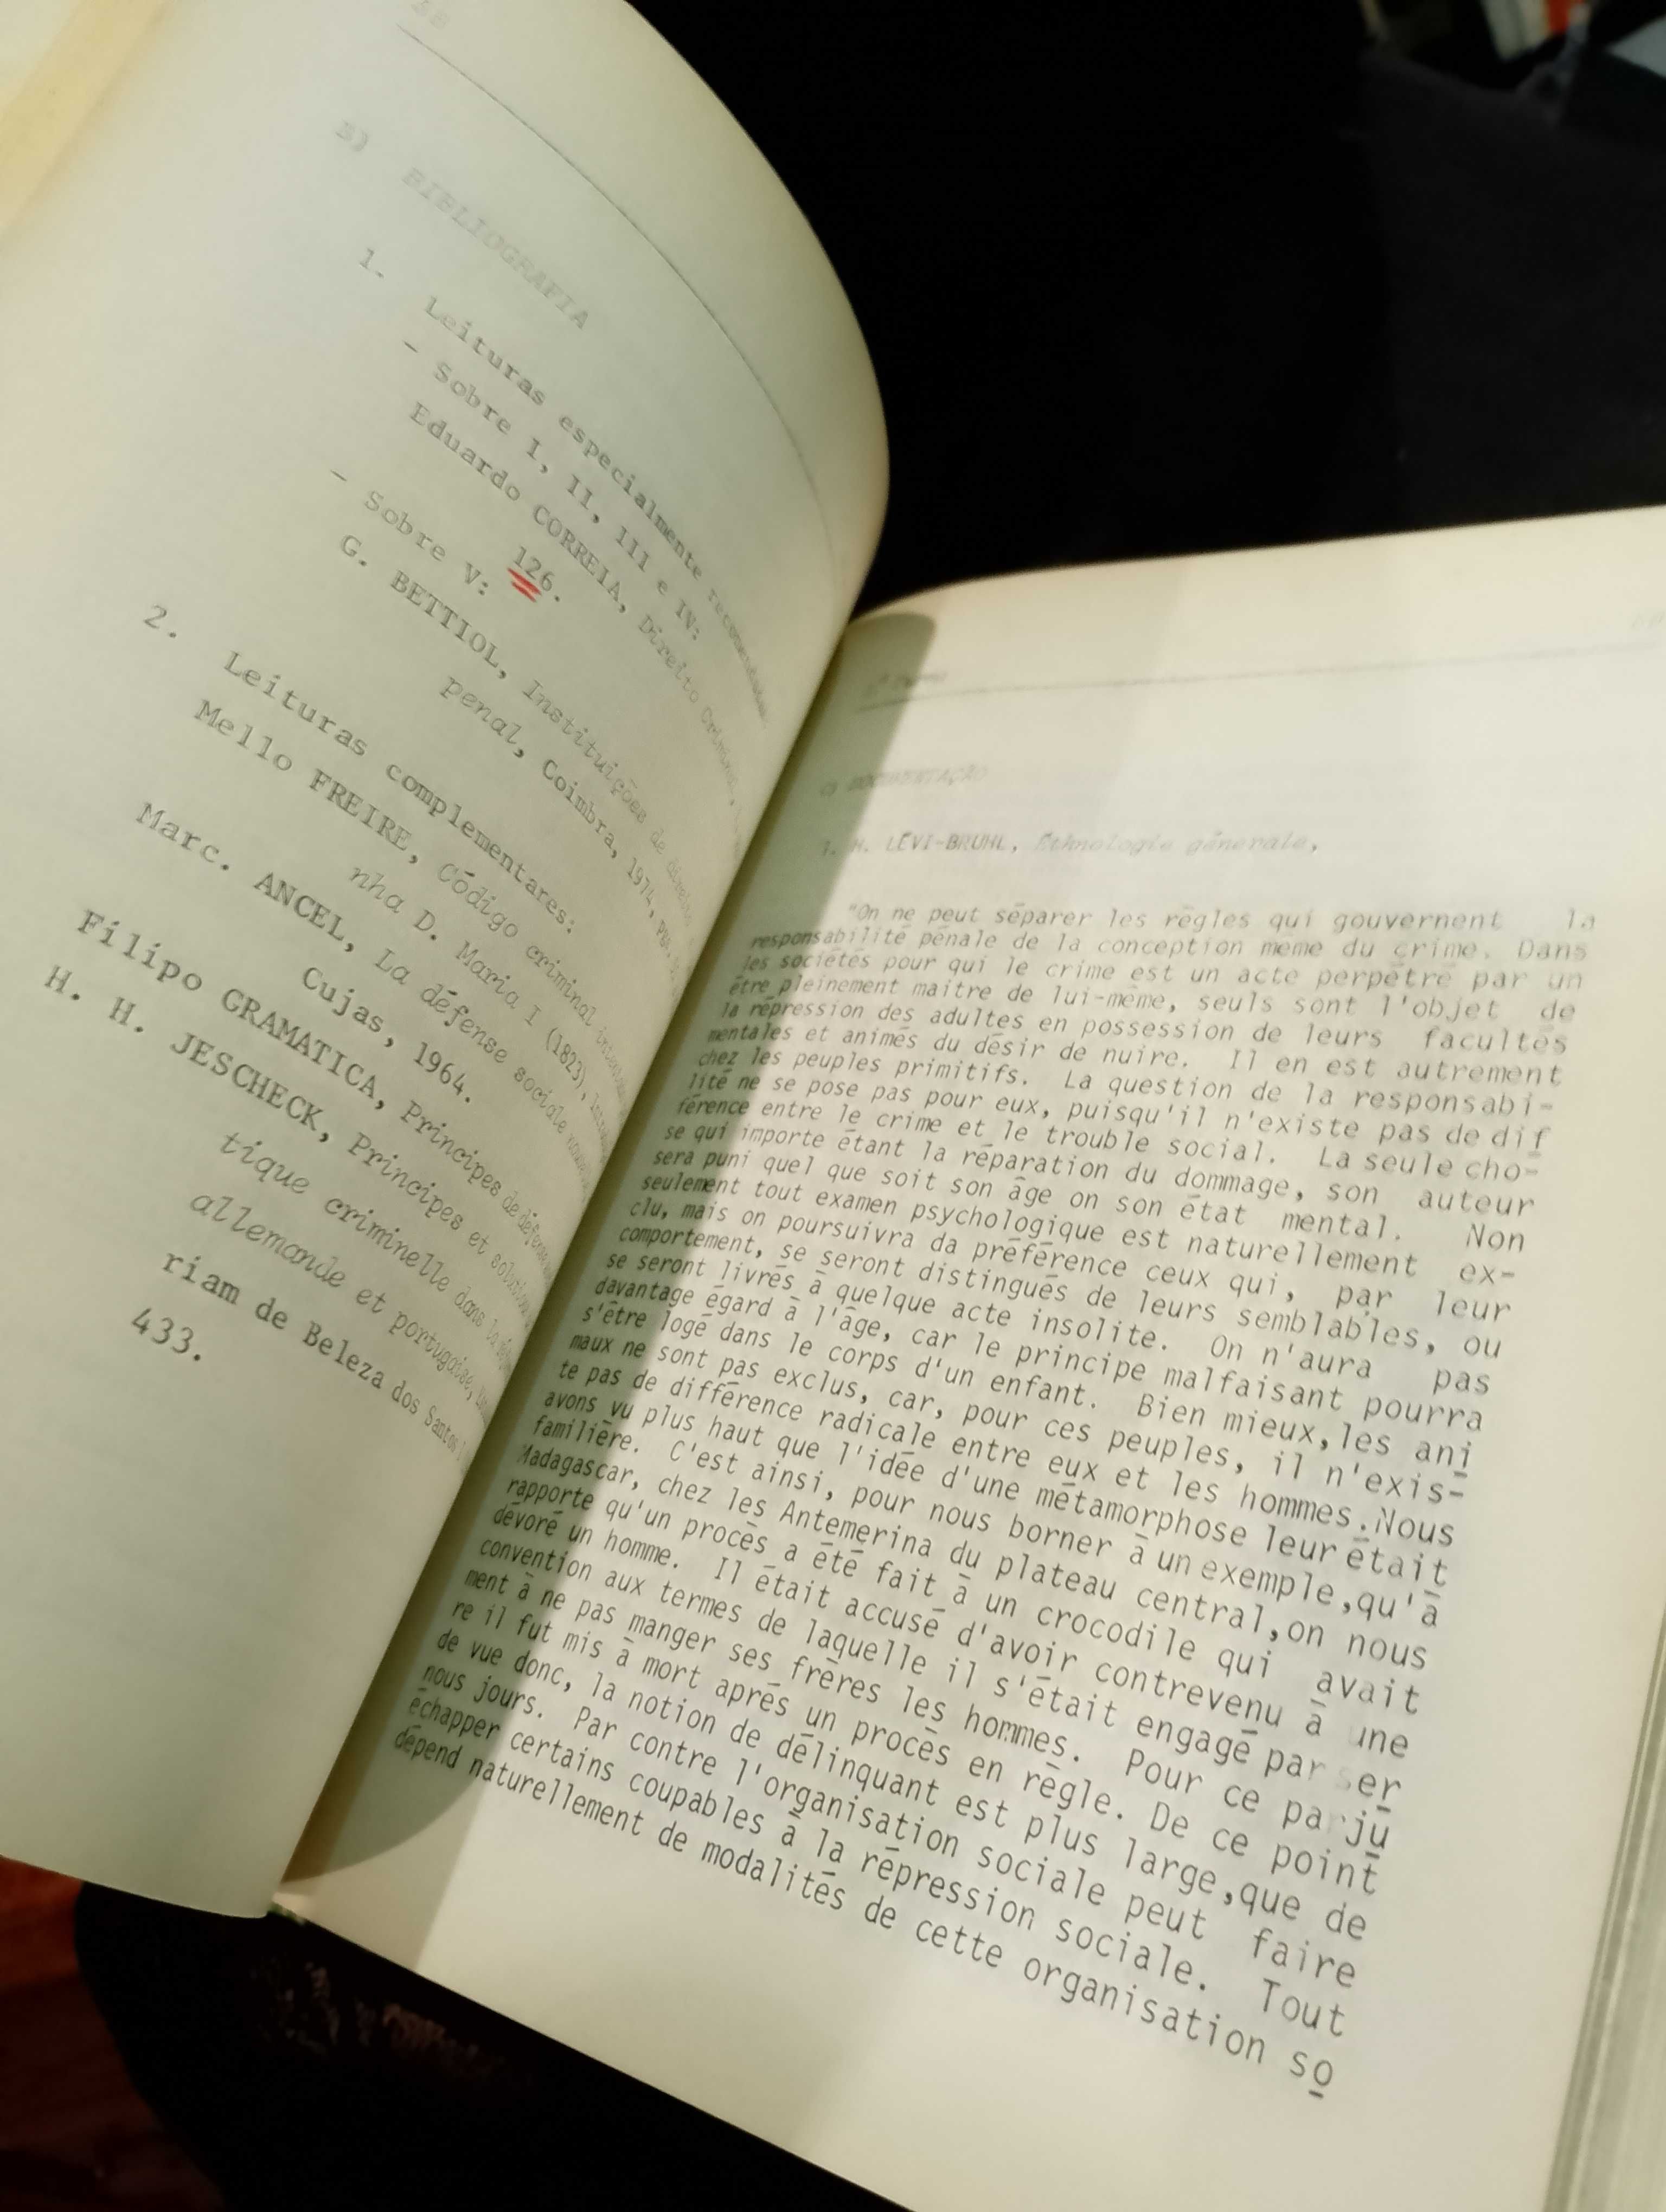 B) BIBLIOGRAFIA
1. Leituras especialmente
- Sobre I, II, III e IV:
Eduardo CORREIA, Direito Criminal,
126.
- Sobre V:
G. BETTIOL, Instituições de direito
penal, Coimbra, 1974,
2. Leituras complementares:
Mello FREIRE, Código criminal
nha D. Maria I (1823),
Marc. ANCEL, La défense sociale
Cujas, 1964.
Filipo GRAMATICA, Principes de défense
H. H. JESCHECK, Principes et solutions
tique criminelle dans la
allemande et portugaise,
riam de Beleza dos Santos
433.
C) DOCUMENTAÇÃO
1. H. LÉVI-BRUHL, Éthnologie génerale,
"On ne peut séparer les règles qui gouvernent la
responsabilité pénale de la conception meme du crime. Dans
les sociétés pour qui le crime est un acte perpétré par un
être pleinement maitre de lui-même, seuls sont l'objet de
la répression des adultes en possession de leurs facultés
mentales et animés du désir de nuire. Il en est autrement
chez les peuples primitifs. La question de la responsabi-
lité ne se pose pas pour eux, puisqu'il n'existe pas de dif
férence entre le crime et le trouble social. La seule cho-
se qui importe étant la réparation du dommage, son auteur
sera puni quel que soit son âge on son état mental. Non
seulement tout examen psychologique est naturellement ex-
clu, mais on poursuivra da préférence ceux qui, par leur
comportement, se seront distingués de leurs semblables, ou
se seront livrés à quelque acte insolite. On n'aura pas
davantage égard à l'âge, car le principe malfaisant pourra
s'être logé dans le corps d'un enfant. Bien mieux, les ani
maux ne sont pas exclus, car, pour ces peuples, il n'exis-
te pas de différence radicale entre eux et les hommes. Nous
avons vu plus haut que l'idée d'une métamorphose leur était
familière. C'est ainsi, pour nous borner à un exemple, qu'à
Madagascar, chez les Antemerina du plateau central, on nous
rapporte qu'un procès a été fait à un crocodile qui avait
dévoré un homme. Il était accusé d'avoir contrevenu à une
convention aux termes de laquelle il s'était engagé par ser
ment à ne pas manger ses frères les hommes. Pour ce parju
re il fut mis à mort aprés un procès en règle. De ce point
de vue donc, la notion de délinquant est plus large, que de
nous jours. Par contre l'organisation sociale peut faire
échapper certains coupables à la répression sociale. Tout
dépend naturellement de modalités de cette organisation so